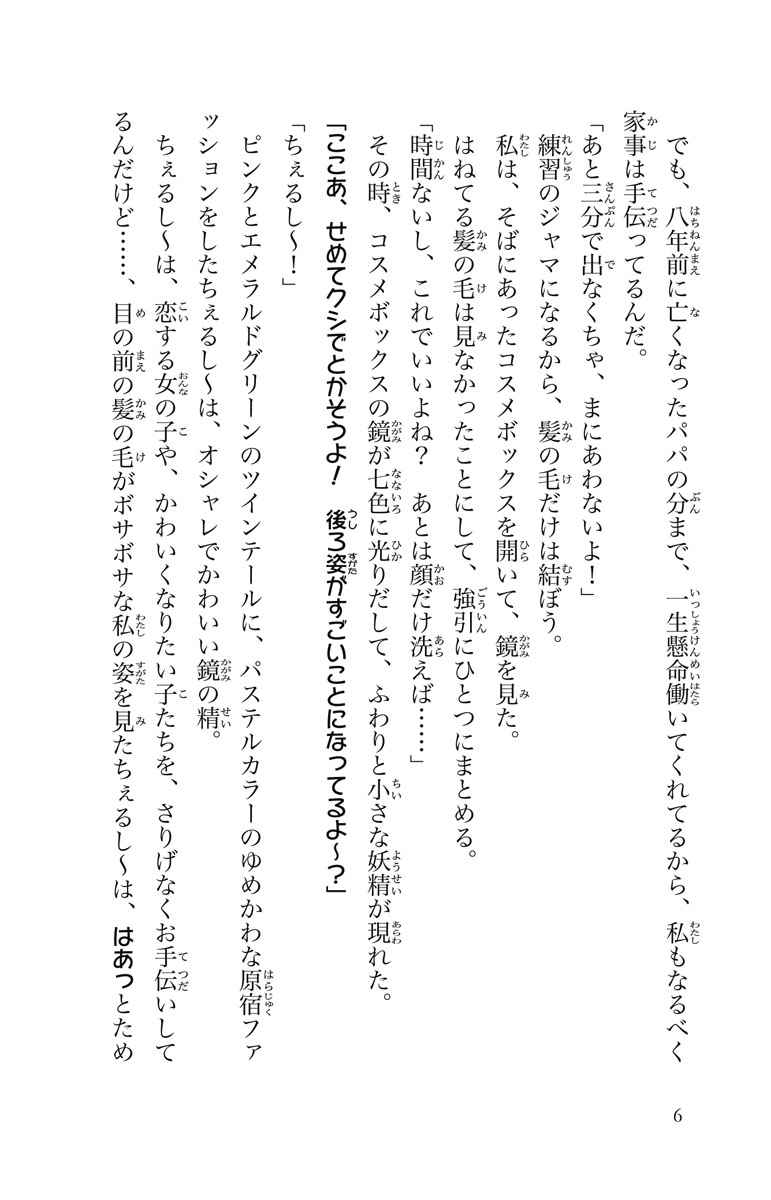 でも、八年前に亡くなったパパの分まで、一生懸命働いてくれてるから、私もなるべく
家事は手伝ってるんだ。
「あと三分で出なくちゃ、まにあわないよ！」
練習のジャマになるから、髪の毛だけは結ぼう。
私は、そばにあったコスメボックスを開いて、鏡を見た。
はねてる髪の毛は見なかったことにして、強引にひとつにまとめる。
「時間ないし、これでいいよね？　あとは顔だけ洗えば……」
その時、コスメボックスの鏡が七色に光りだして、ふわりと小さな妖精が現れた。
「ここあ、せめてクシでとかそうよ！　後ろ姿がすごいことになってるよ〜？」
「ちぇるし〜！」
ピンクとエメラルドグリーンのツインテールに、パステルカラーのゆめかわな原宿ファ
ッションをしたちぇるし〜は、オシャレでかわいい鏡の精。
ちぇるし〜は、恋する女の子や、かわいくなりたい子たちを、さりげなくお手伝いして
るんだけど……、目の前の髪の毛がボサボサな私の姿を見たちぇるし〜は、はあっとため
6